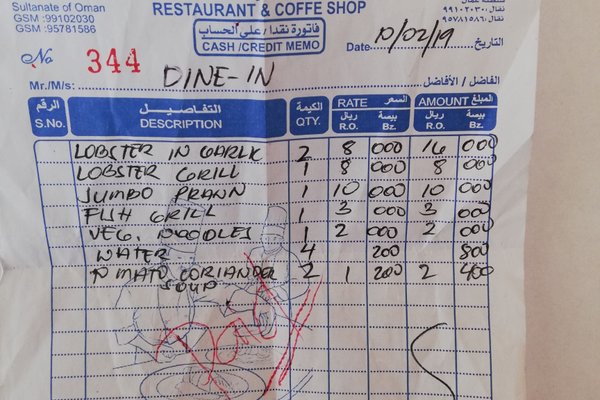 Sultanate of Oman
GSM :99102030
GSM : 95781586
RESTAURANT & COFFE SHOP
نقال : ٩٩١٠٢٠٣٠
نقال : ٩٥٧٨١٥٨٦
فاتورة نقدا / على الحساب
CASH /CREDIT MEMO
Date 10/02/19 التاريخ
No 344
DINE-IN
Mr./M/s: الفاضل / الأفاضل
الرقم التفاصيل الكمية RATE السعر AMOUNT المبلغ
S.No. DESCRIPTION QTY. ريال بيسة ريال بيسة
R.O. Bz. R.O. Bz.
LOBSTER IN GARLIC 2 8 000 16 000
LOBSTER GRILL 1 8 000 8 000
JUMBO PRANN 1 10 000 10 000
FISH GRILL 1 3 000 3 000
VEG. NOODLES 1 2 000 2 000
WATER 4 200 800
TOMATO CORIANDER 2 1 200 2 400
SOUP